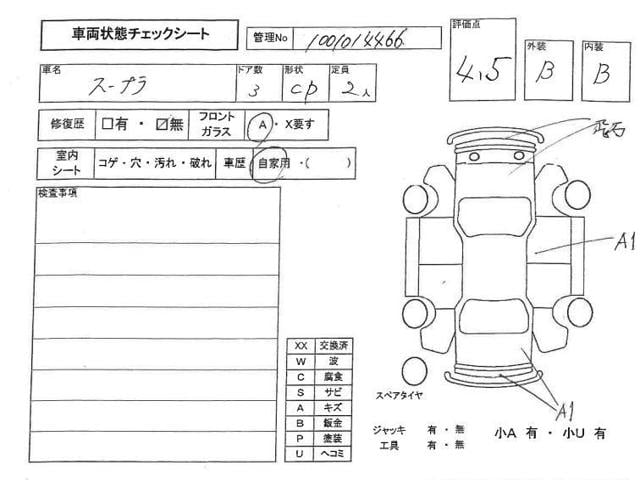 車両状態チェックシート
管理No 1001014466
評価点 4,5
外装 B
内装 B
車名 スープラ
ドア数 3
形状 CP
定員 2人
修復歴 □有・☑無
フロントガラス A・X要す
室内シート コゲ・穴・汚れ・破れ
車歴 自家用・( )
検査事項
飛石
A1
A1
XX 交換済
W 波
C 腐食
S サビ
A キズ
B 鈑金
P 塗装
U ヘコミ
スペアタイヤ
ジャッキ 有・無
工具 有・無
小A 有・小U 有